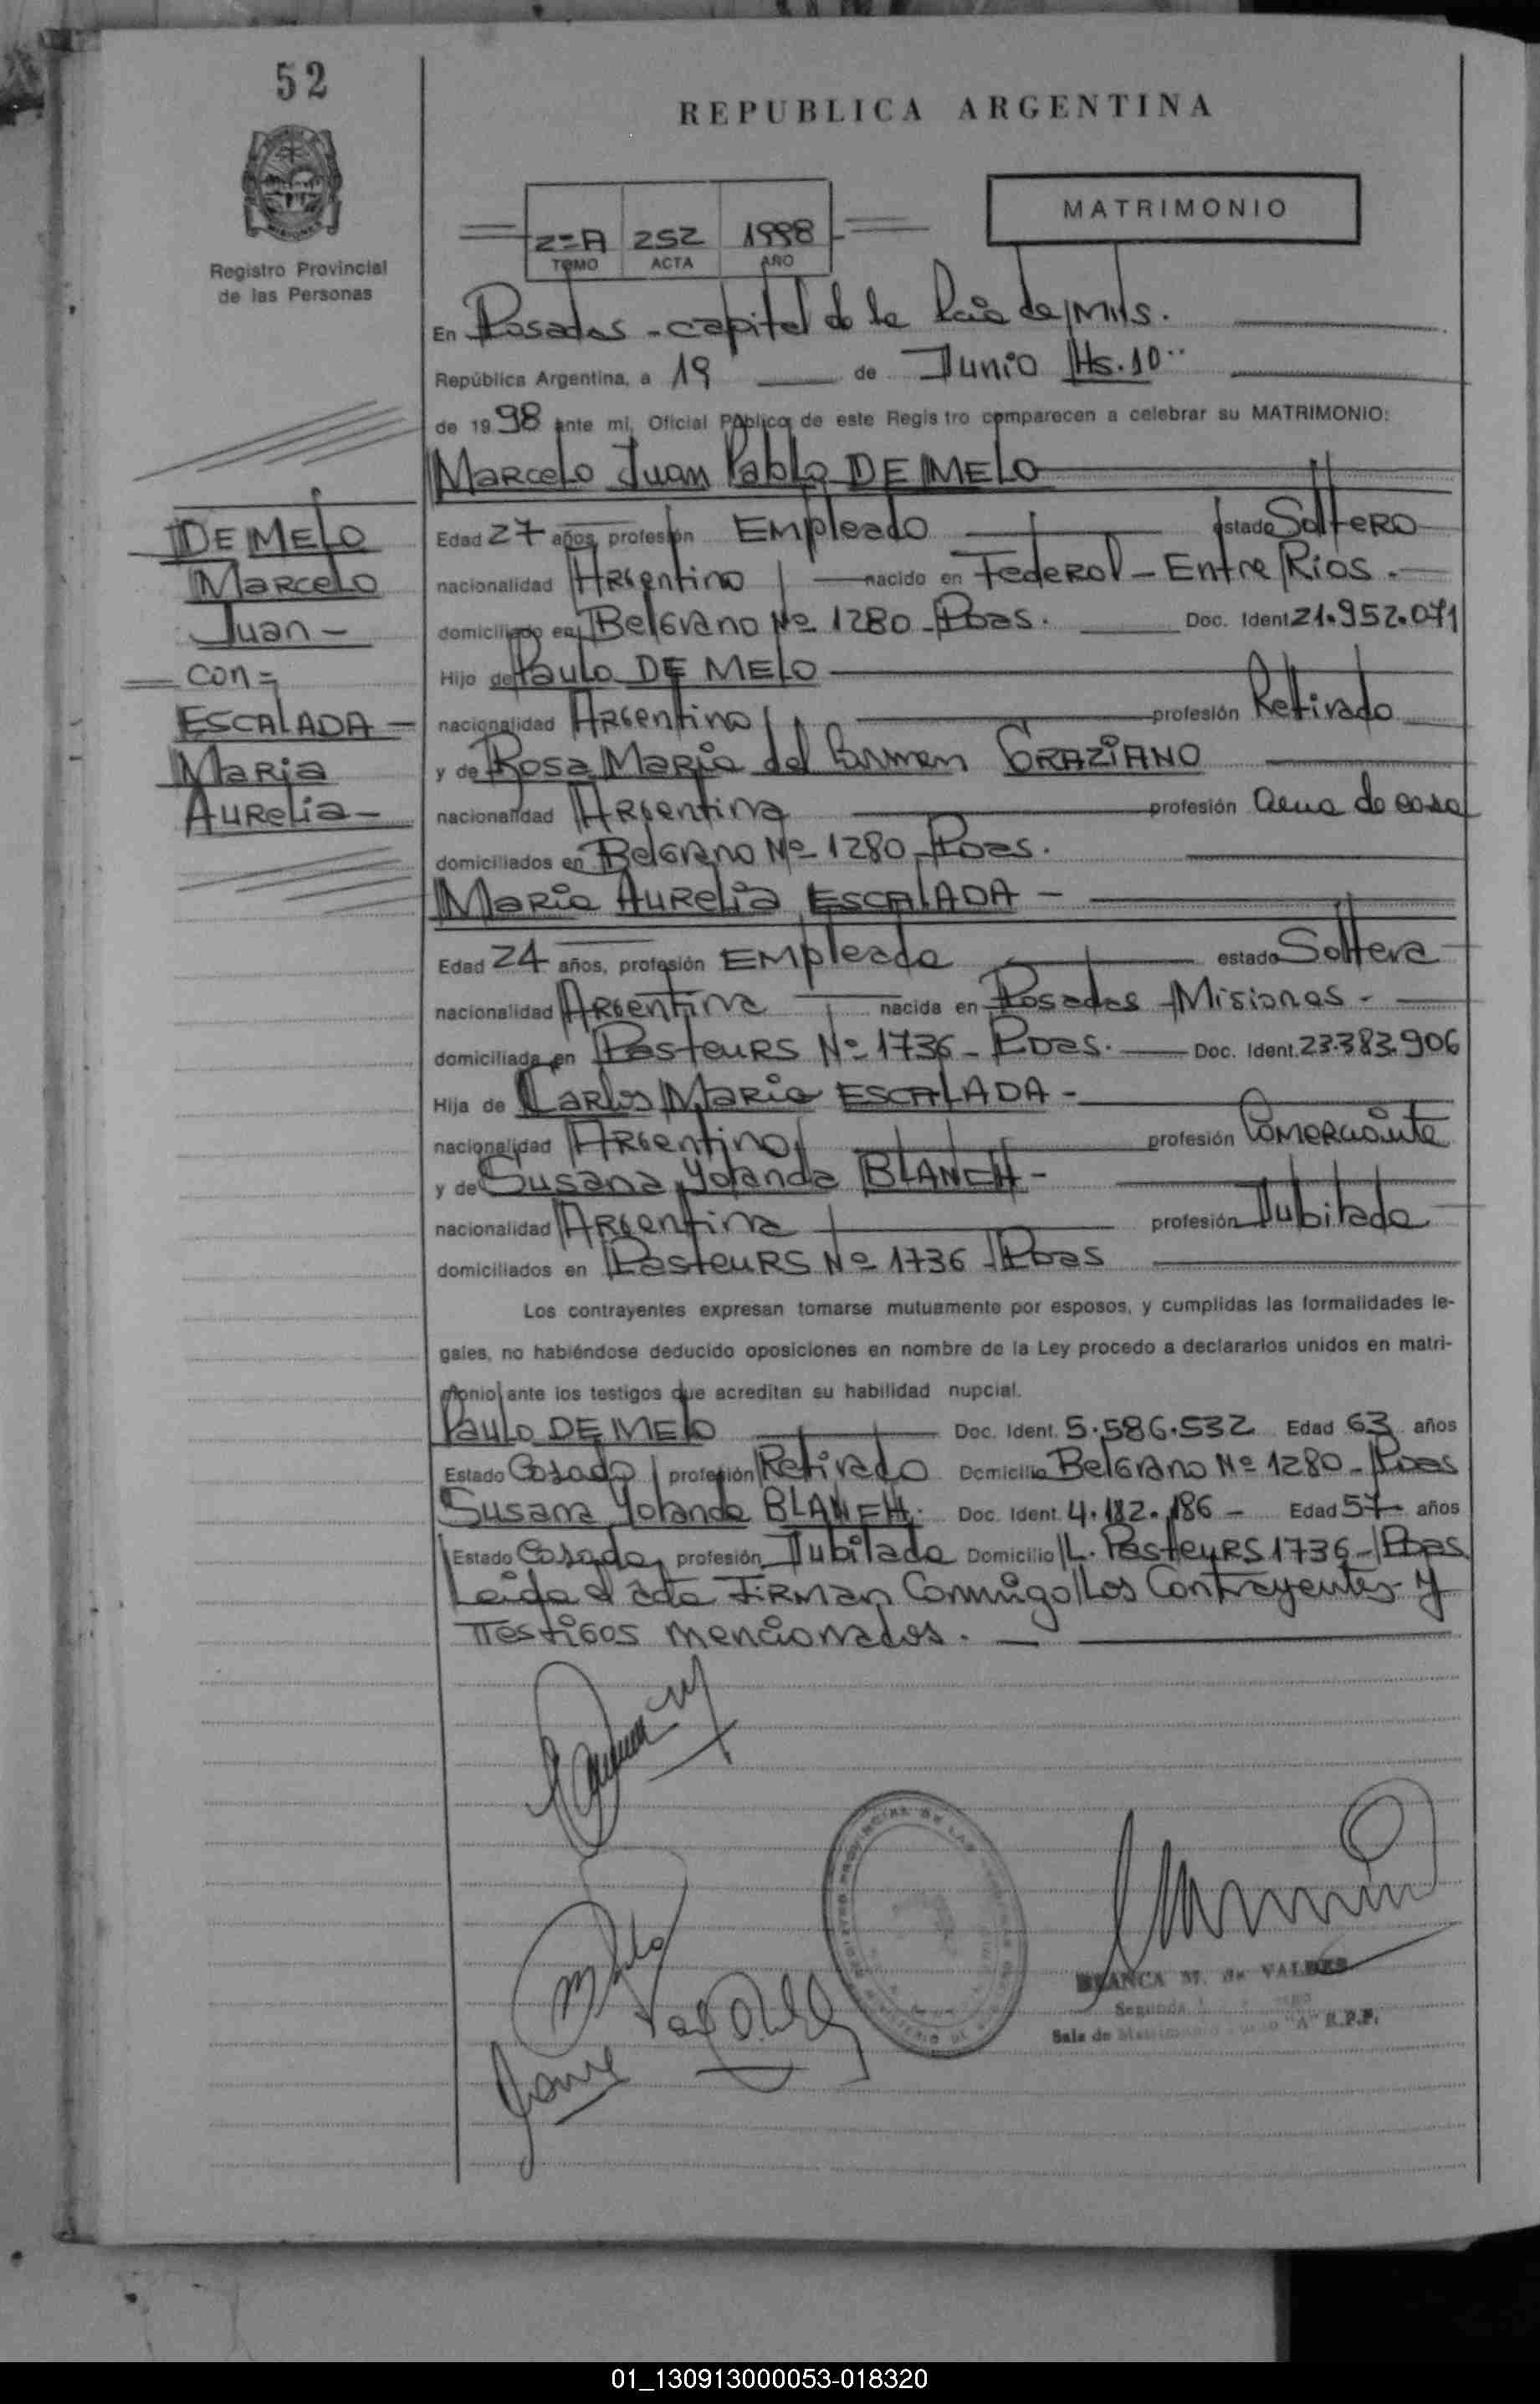 52
REPUBLICA ARGENTINA
MATRIMONIO
2=A 252 1998
TOMO ACTA AÑO
Registro Provincial
de las Personas
En Posadas - capital de la Pcia de Mns.
República Argentina, a 19 de Junio Hs. 10
de 1998 ante mi, Oficial Público de este Registro comparecen a celebrar su MATRIMONIO:
Marcelo Juan Pablo DE MELO
DE MELO
Marcelo
Juan -
con =
ESCALADA -
Maria
Aurelia -
Edad 27 años, profesión Empleado estado Soltero
nacionalidad Argentino nacido en Federal - Entre Rios. -
domiciliado en Belgrano Nº 1280 - Pdas. Doc. Ident 21.952.071
Hijo de Paulo DE MELO
nacionalidad Argentino profesión Retirado
y de Rosa Maria del Carmen GRAZIANO
nacionalidad Argentina profesión ama de casa
domiciliados en Belgrano Nº 1280 - Pdas.
Maria Aurelia ESCALADA -
Edad 24 años, profesión Empleada estado Soltera
nacionalidad Argentina nacida en Posadas Misiones -
domiciliada en Pasteurs Nº 1736 - Pdas. Doc. Ident. 23.383.906
Hija de Carlos Maria ESCALADA -
nacionalidad Argentino profesión Comerciante
y de Susana Yolanda BLANCH -
nacionalidad Argentina profesión Jubilada
domiciliados en Pasteurs Nº 1736 - Pdas
Los contrayentes expresan tomarse mutuamente por esposos, y cumplidas las formalidades le-
gales, no habiéndose deducido oposiciones en nombre de la Ley procedo a declararlos unidos en matri-
monio ante los testigos que acreditan su habilidad nupcial.
Paulo DE MELO Doc. Ident. 5.586.532 Edad 63 años
Estado Casado profesión Retirado Domicilio Belgrano Nº 1280 - Pdas
Susana Yolanda BLANCH. Doc. Ident. 4.182.186 - Edad 57 años
Estado Casada, profesión Jubilada Domicilio L. Pasteurs 1736 - Pdas
Leida el acta Firman Conmigo Los Contrayentes y
Testigos mencionados.
BLANCA M. de VALDES
Segunda
Sala de "A" R.P.P.
01_130913000053-018320